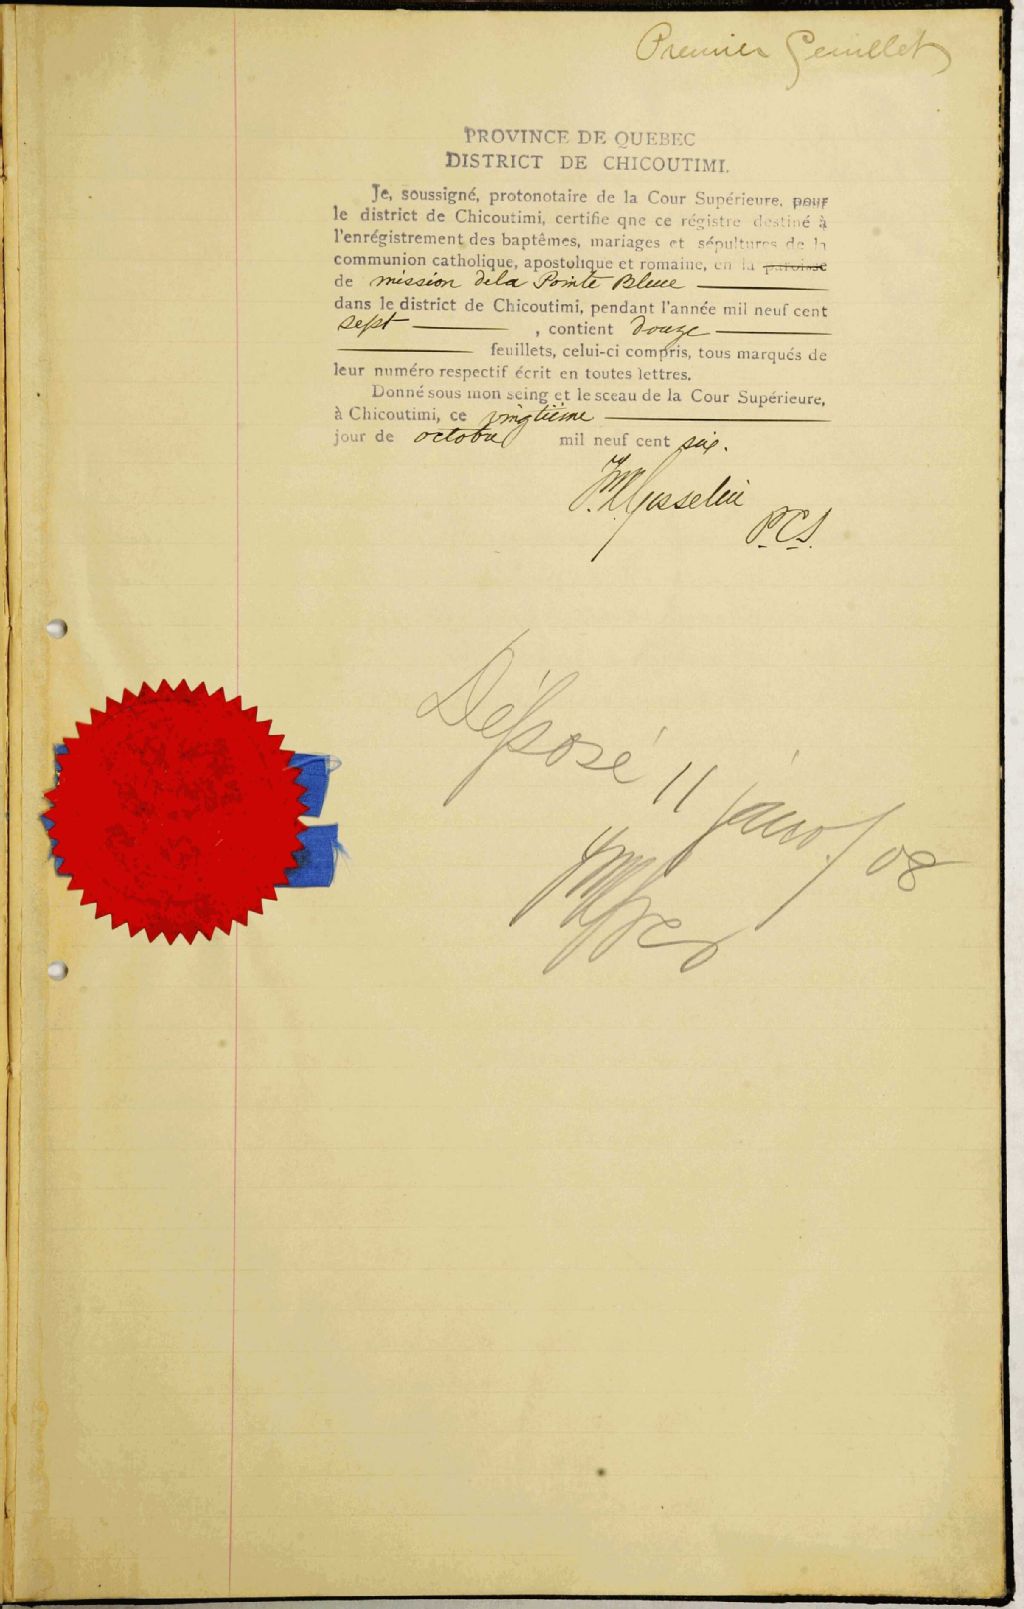 Premier feuillet
PROVINCE DE QUEBEC
DISTRICT DE CHICOUTIMI.
Je, soussigné, protonotaire de la Cour Supérieure, pour
le district de Chicoutimi, certifie qne ce régistre destiné à
l'enrégistrement des baptêmes, mariages et sépultures de la
communion catholique, apostolique et romaine, en la paroisse
de mission dela Pointe Bleue
dans le district de Chicoutimi, pendant l'année mil neuf cent
sept , contient douze
feuillets, celui-ci compris, tous marqués de
leur numéro respectif écrit en toutes lettres.
Donné sous mon seing et le sceau de la Cour Supérieure,
à Chicoutimi, ce vingtième
jour de octobre mil neuf cent six.
P.C.S.
Déposé 11 janv./08